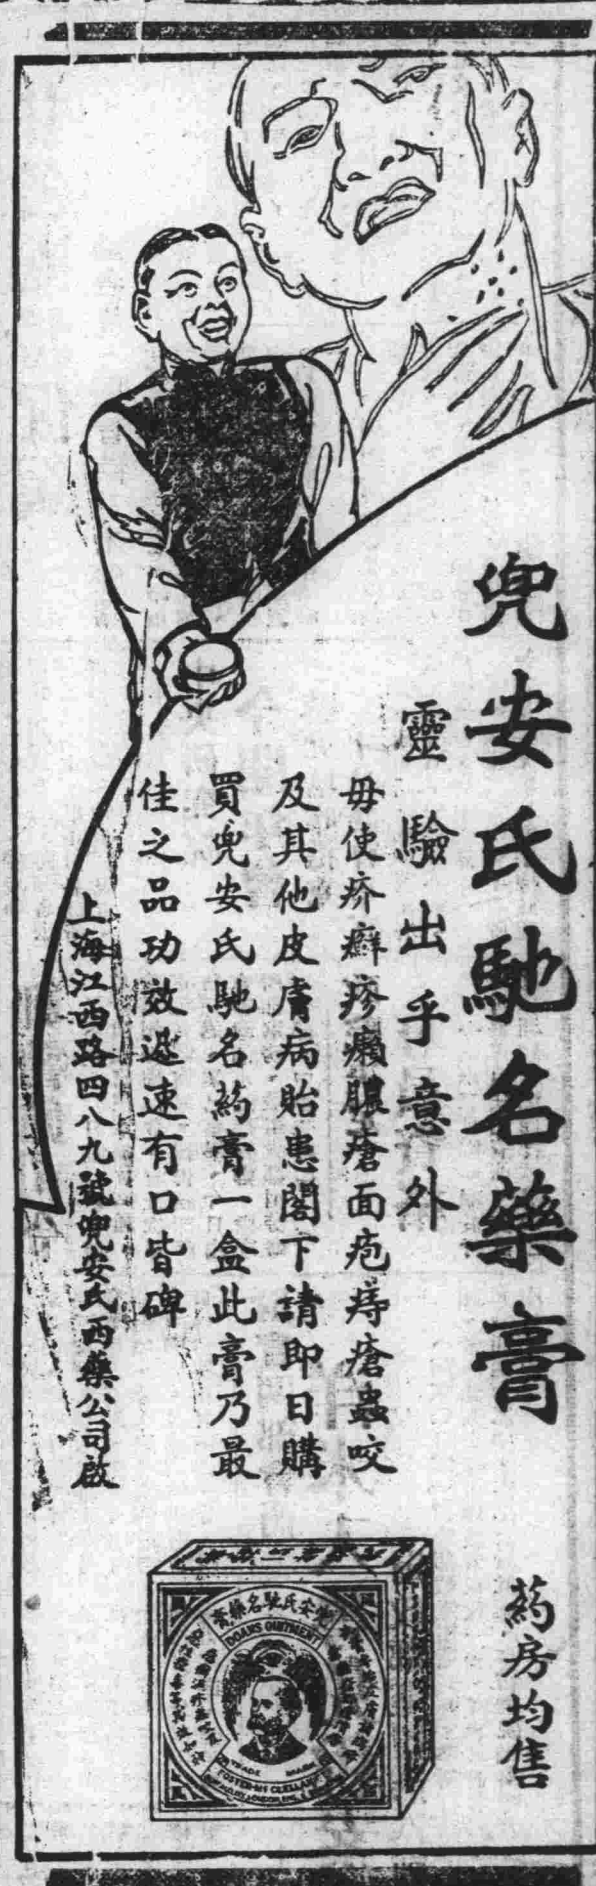 兜安氏馳名藥膏
靈驗出乎意外
毋使疥癬疹癩膿瘡面疱痔瘡蟲咬
及其他皮膚病貽患閣下請即日購
買兜安氏馳名葯膏一盒此膏乃最
佳之品功效迅速有口皆碑
上海江西路四八九號兜安氏西藥公司啟
葯房均售
兜安氏馳名藥膏
DOANS OINTMENT
TRADE MARK
FOSTER-McCLELLAN